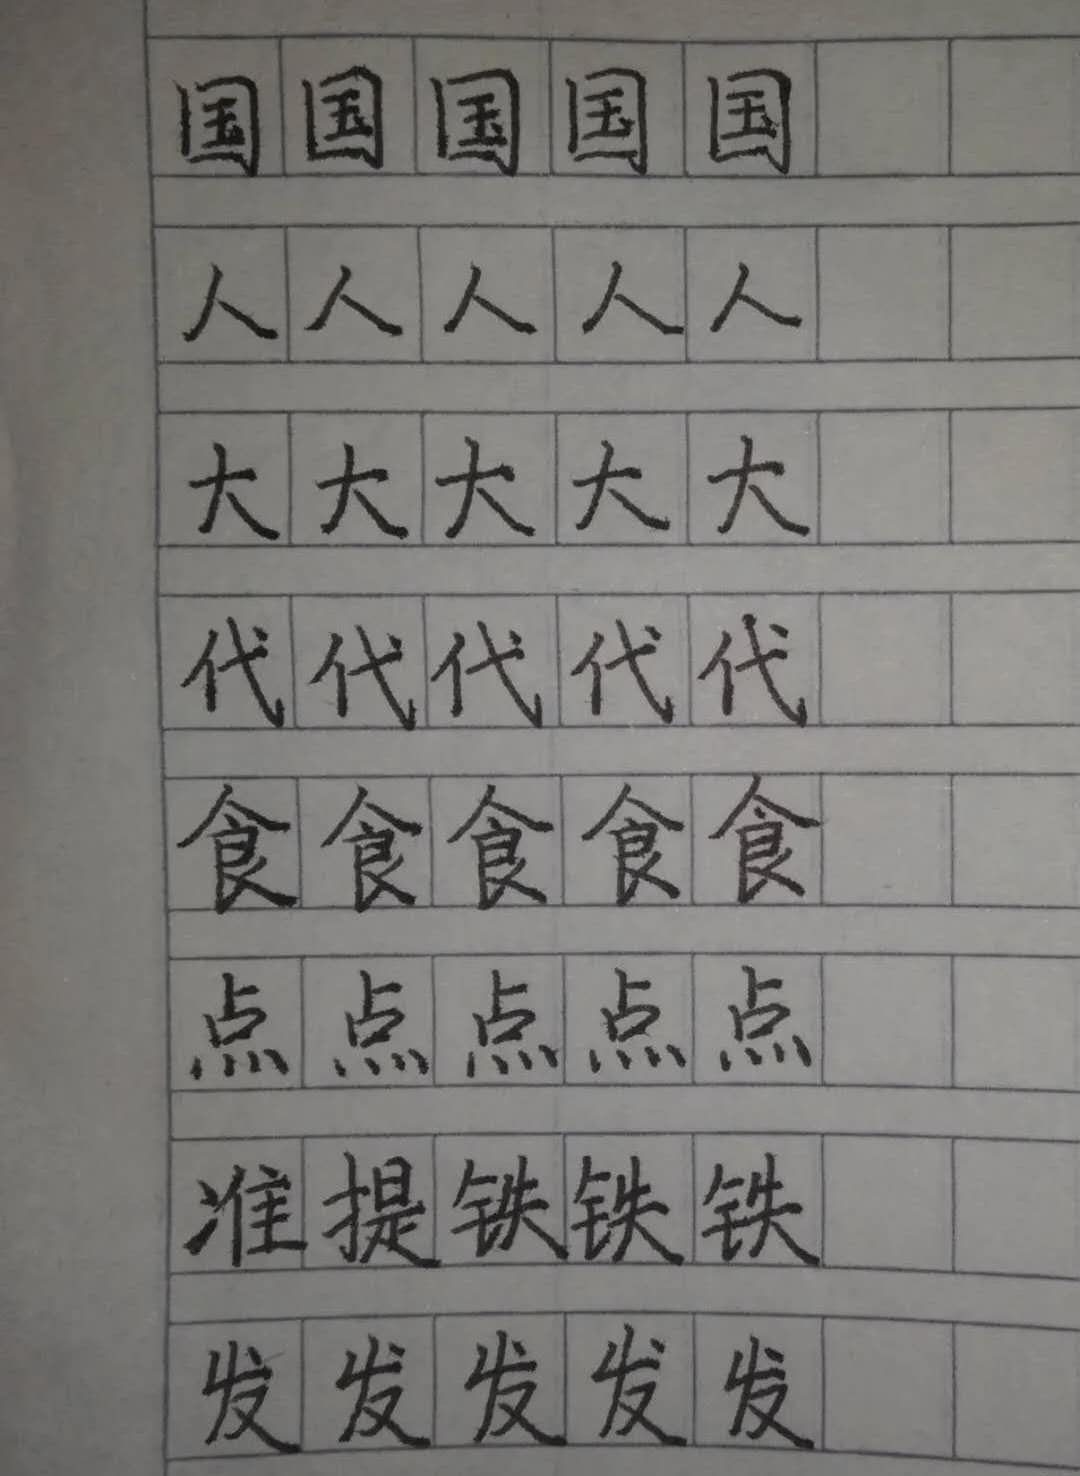 国国国国国
人人人人人
大大大大大
代代代代代
食食食食食
点点点点点
准提铁铁铁
发发发发发